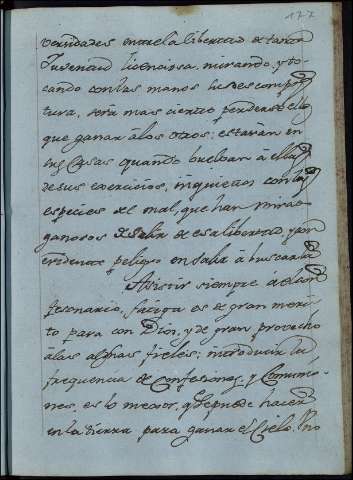 177
versidades entre la libertad de tanta
Juventud licenciosa, mirando, y to-
cando con las manos su descompos
tura, será mas cierto perderse ellos
que ganar á los otros; estarán en
sus Casas quando buelban á ellas
de sus exercicios, inquietos con las
especies del mal, que han mirado
ganosos de salir de esa libertad, y por
evidente peligro en salir á buscarla
Asistir siempre á el con
fesonario, fatiga es de gran meri-
to para con Dios, y de gran provecho
á las almas fieles; introducir la
frequencia de Confesiones, y Comunio-
nes, es lo mejor, q se puede hacer
en la tierra para ganar el Cielo. Pero